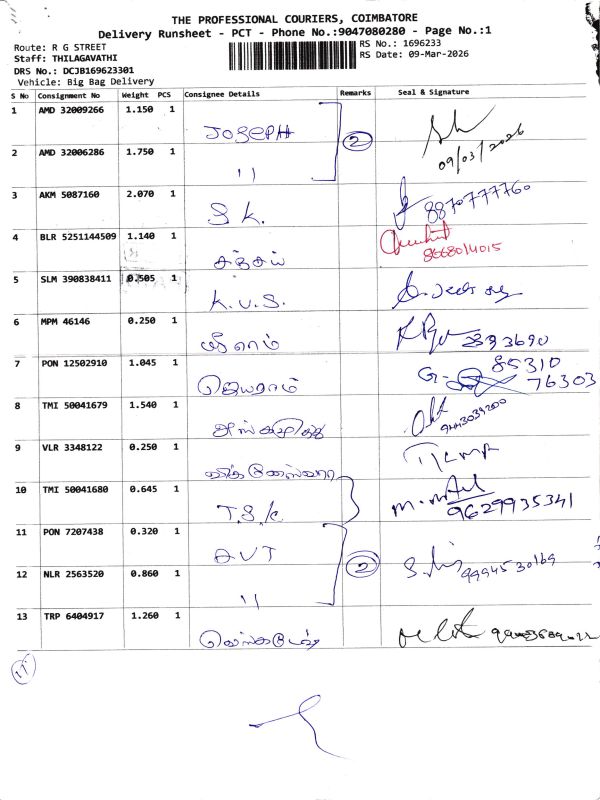 THE PROFESSIONAL COURIERS, COIMBATORE
Delivery Runsheet - PCT - Phone No.:9047080280 - Page No.:1
Route: R G STREET
RS No.: 1696233
Staff: THILAGAVATHI
RS Date: 09-Mar-2026
DRS No.: DCJB169623301
Vehicle: Big Bag Delivery
S No Consignment No Weight PCS Consignee Details Remarks Seal & Signature
1 AMD 32009266 1.150 1 JOSEPH 2 09/03/2026
2 AMD 32006286 1.750 1 11
3 AKM 5087160 2.070 1 S K. 8870777760
4 BLR 5251144509 1.140 1 சஞ்சய் 8668014015
5 SLM 390838411 0.505 1 K.V.S.
6 MPM 46146 0.250 1 ஸ்ரீராம்
7 PON 12502910 1.045 1 ஜெயராம் 85310 76303
8 TMI 50041679 1.540 1
9 VLR 3348122 0.250 1
10 TMI 50041680 0.645 1 T.S.K 9629935341
11 PON 7207438 0.320 1 AVT 2 9994530169
12 NLR 2563520 0.860 1 11
13 TRP 6404917 1.260 1 வெங்கடேஷ்